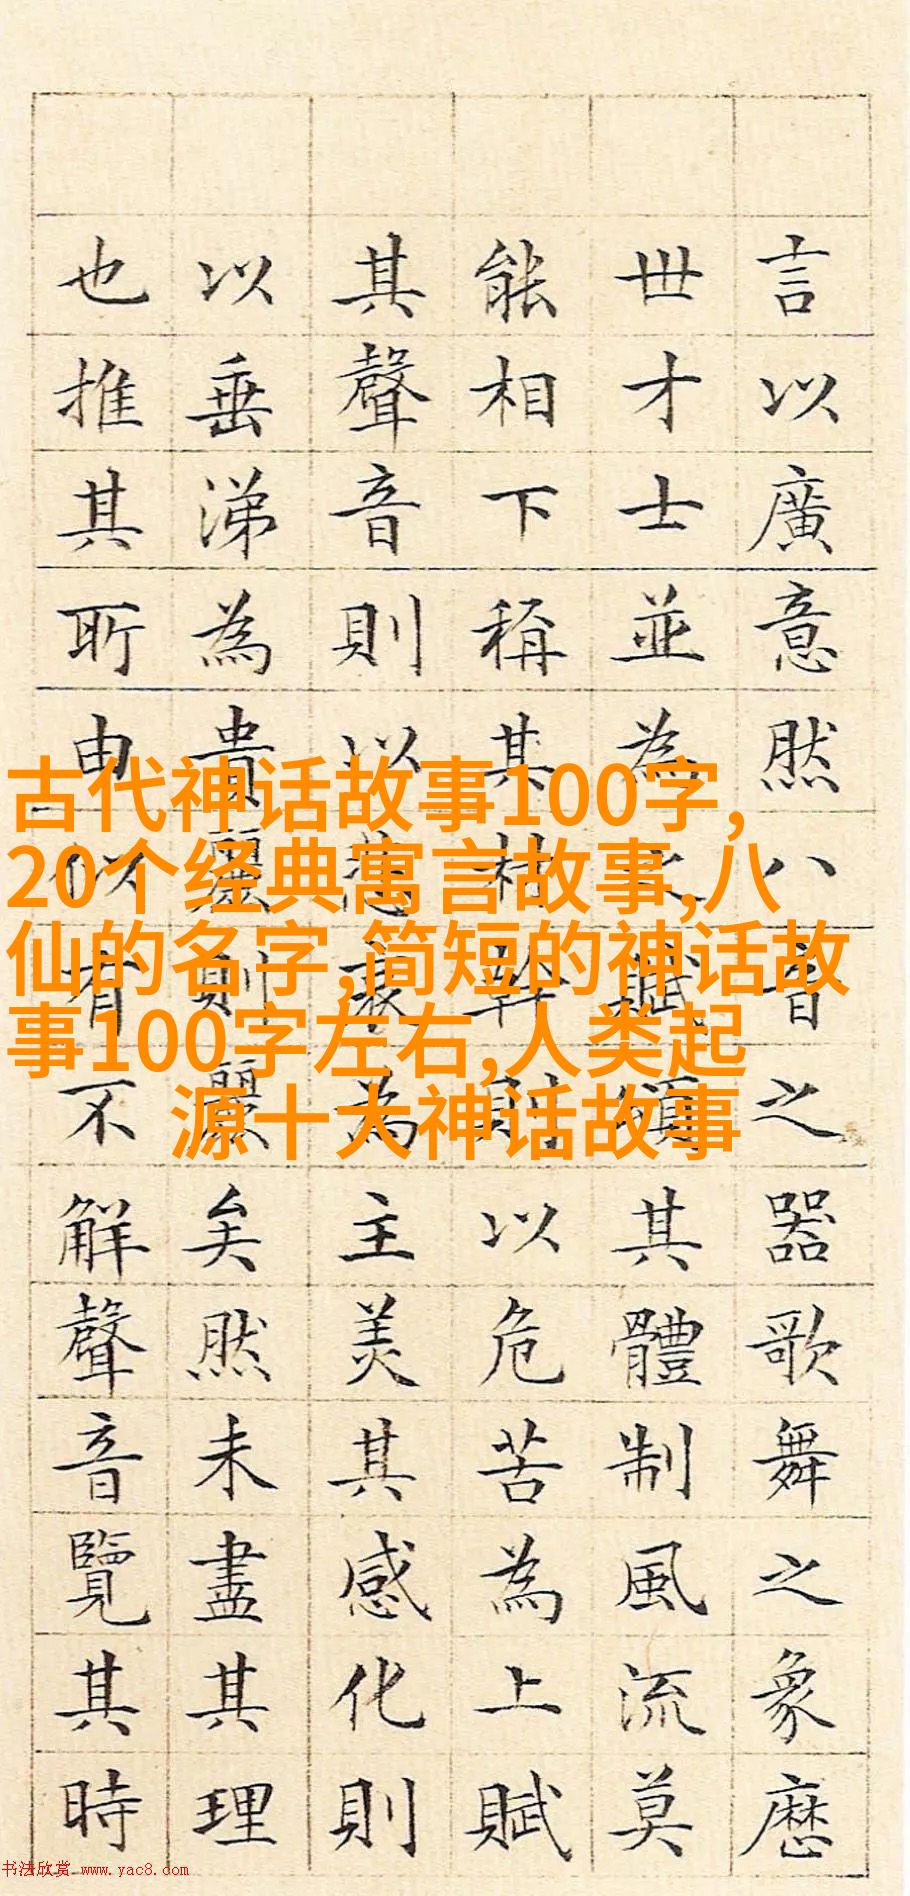 言以廣意然八音之器歌舞之象歷
世才士並為之賦頌其體制風流莫
能相下稱其材幹則以危苦為上賦
其聲音則以悲哀為主美其感化則
以垂涕為貴麗則麗矣然未盡其理
也推其所由似有不解聲音覽其時
古代神话故事100字,
20个经典寓言故事,八
仙的名字,简短的神话故
事100字左右,人类起
源十大神话故事
书法欣赏 www.yac8.com